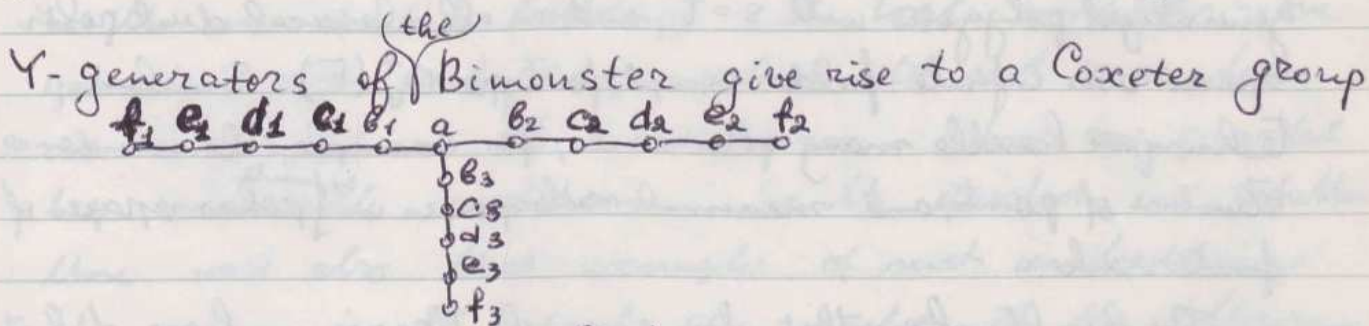 (the)
Y-generators of Bimonster give rise to a Coxeter group
f₁ e₁ d₁ c₁ b₁ a b₂ c₂ d₂ e₂ f₂
b₃
c₃
d₃
e₃
f₃